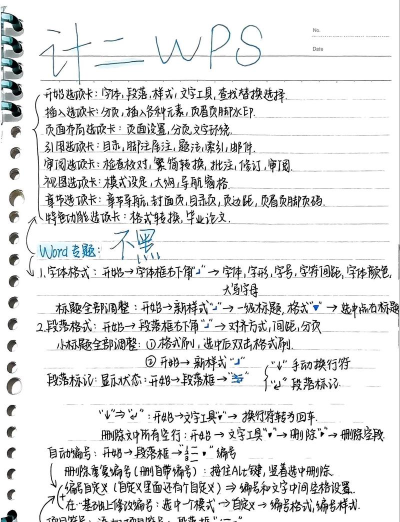 No.
Date
计二WPS
开始选项卡：字体，段落，样式，文字工具，查找替换选择.
插入选项卡：分页，插入各种元素，页眉页脚水印.
页面布局选项卡：页面设置，分页，文字环绕.
引用选项卡：目录，脚注尾注，题注，索引，邮件.
审阅选项卡：检查校对，繁简转换，批注，修订，审阅.
视图选项卡：模式设定，大纲，导航窗格
章节选项卡：章节导航，封面页，目录页，页边距，页眉页脚页码.
特色功能选项卡：格式转换，毕业论文.
Word专题：不黑
1.字体格式：开始→字体框右下角"┘"→字体，字形，字号，字符间距，字体颜色，
大写字母
标题全部调整：开始→新样式"┘"→一级标题，格式"▼"→选中点右标题
2.段落格式：开始→段落框右下角"┘"→对齐方式，间距，分页
小标题全部调整：①格式刷，选中后双击格式刷.
②开始→新样式"┘"
段落标记：显示状态：开始→段落框→
"↓"手动换行符
"↵"段落标记.
"↓"⇒"↵"：开始→文字工具"▼"→换行符转为回车.
删除文中所有空行：开始→文字工具"▼"→删除"▼"→删除空段
自动编号：开始→段落框→编号
删除重复编号（删自带编号）：按住Alt键，竖着选中删除.
编号自定义（自定义里面还有个自定义）⇒编号和文字中间空格设置.
在一基础上修改编号：选中个模式→自定义→编号格式，编号样式.